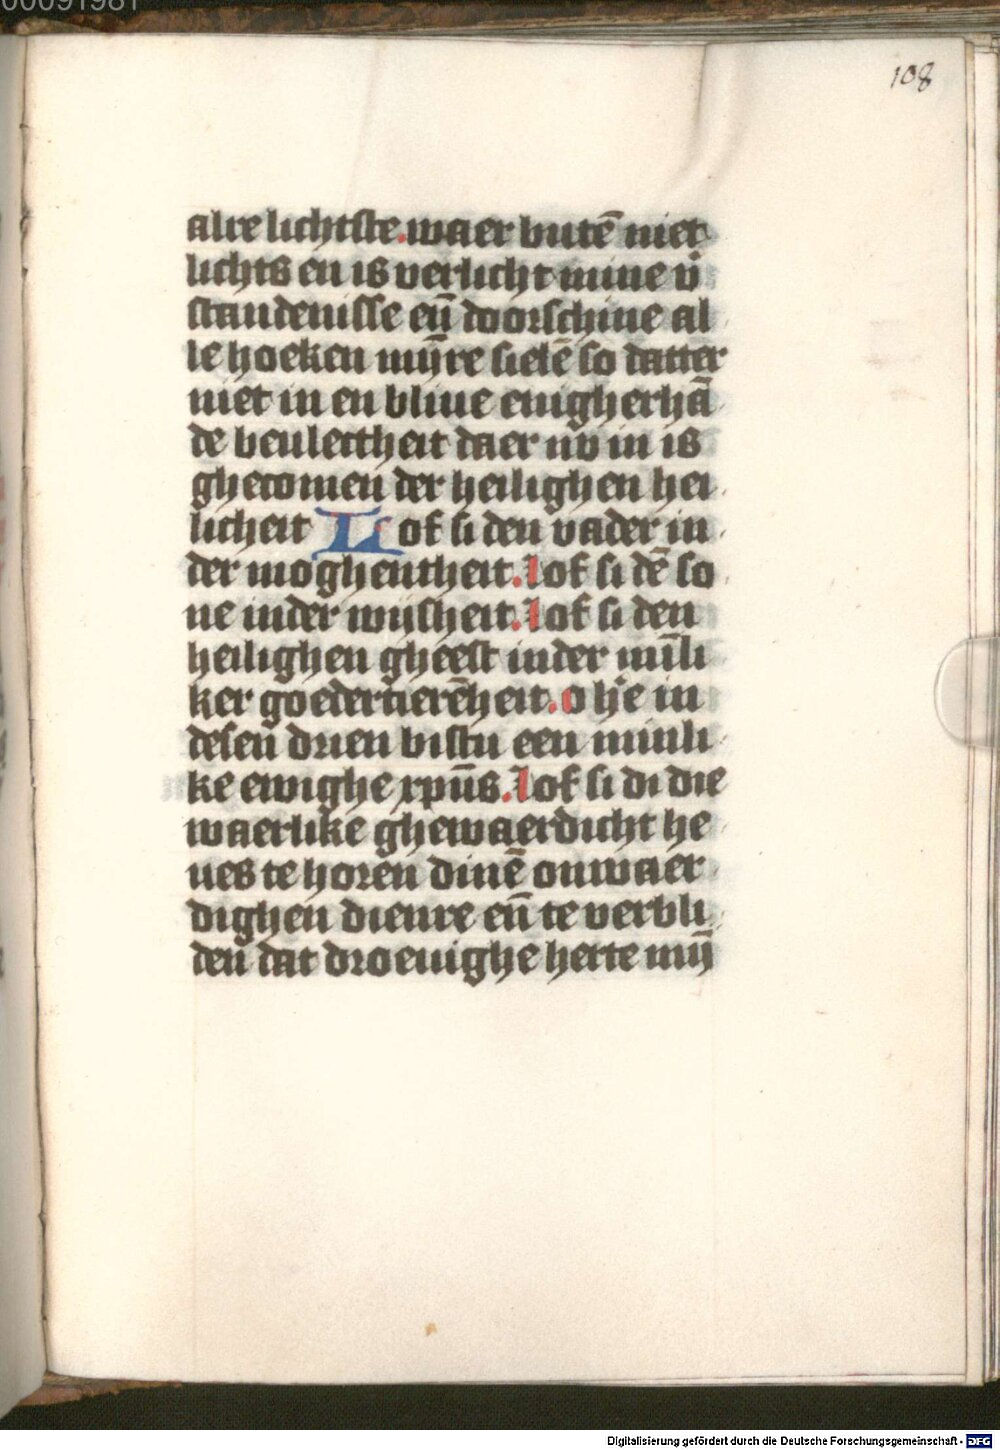 00091981
108
alre lichtste. waer butē niet
lichts en is verlicht mine v̄
standenisse en̄ doorschine al
le hoeken mijnre sielē so datter
niet in en bliue enigherhā
de beulectheit daer nv in is
ghecomen der heilighen hei
licheit Lof si den vader in
der moghentheit. lof si dē so
ne inder wijsheit. lof si den
heilighen gheest inder mīli
ker goedertierēheit. o hē in
desen drien bistu een minli
ke ewighe xpūs. lof si di die
waerlike ghewaerdicht he
ues te horen dinē onwaer
dighen dienre en̄ te verbli
den dat droeuighe herte mij̄
Digitalisierung gefördert durch die Deutsche Forschungsgemeinschaft - DFG